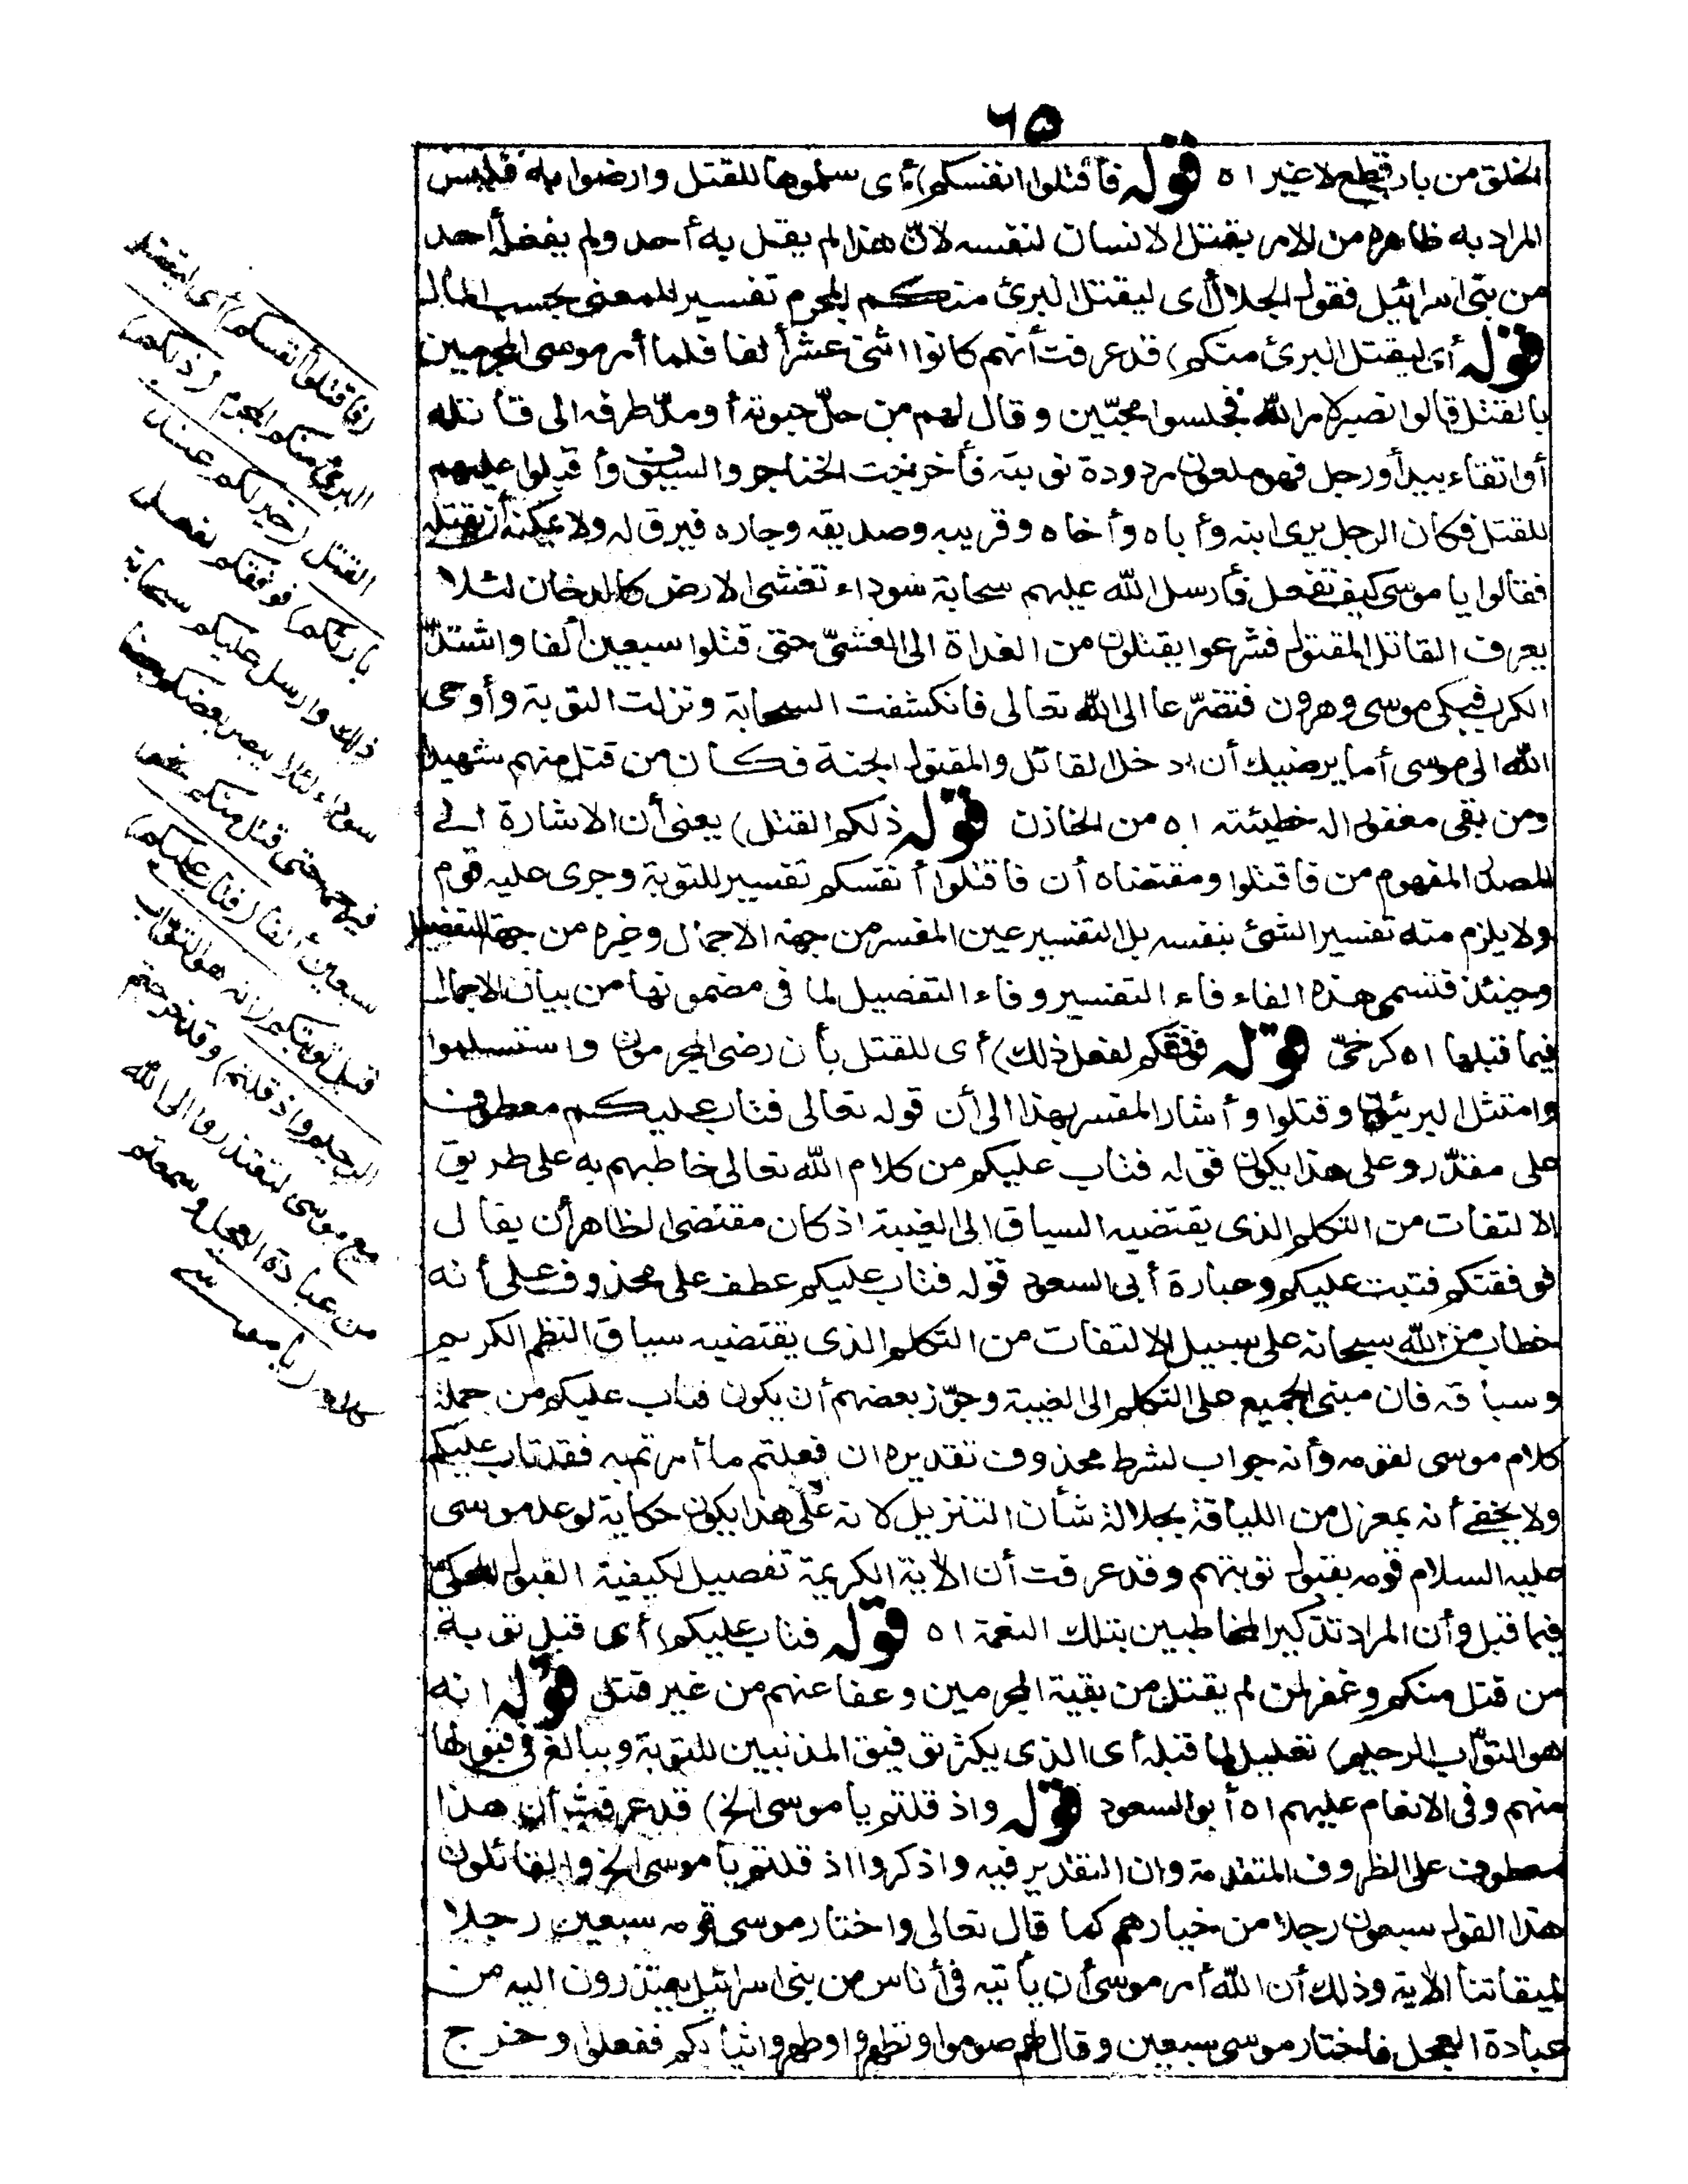 ٦٥
الخلق من باب قطع لا غير اه قوله فاقتلوا انفسكم) أى سلموها للقتل وارضوا به فليس
المراد به ظاهره من الامر بقتل الانسان لنفسه لانّ هذا لم يقل به أحد ولم يفعله أحد
من بنى اسرائيل فقول الجلال أى ليقتل البرئ منكم المجرم تفسير للمعنى بحسب المآل
قوله أى ليقتل البرئ منكم) قد عرفت أنهم كانوا اثنى عشر ألفا فلما أمر موسى المجرمين
بالقتل قالوا نصبر لامر الله فجلسوا محتبين وقال لهم من حلّ حبوته أو مدّ طرفه الى قاتله
أو اتقاه بيد أو رجل فهو ملعون مردودة توبته فأخرجت الخناجر والسيوف وأقبلوا عليهم
للقتل فكان الرجل يرى ابنه وأباه وأخاه وقريبه وصديقه وجاره فيرق له ولا يمكنه أن يقتله
فقالوا يا موسى كيف نفعل فأرسل الله عليهم سحابة سوداء تغشى الارض كالدخان لئلا
يعرف القاتل المقتول فشرعوا يقتلون من الغداة الى العشىّ حتى قتلوا سبعين ألفا واشتدّ
الكرب فبكى موسى وهرون فتضرّعا الى الله تعالى فانكشفت السحابة ونزلت التوبة وأوحى
الله الى موسى أما يرضيك أن ادخل القاتل والمقتول الجنة فكان من قتل منهم شهيدا
ومن بقى مغفورا له خطيئته اه من الخازن قوله ذلكم القتل) يعنى أن الاشارة الى
المصدر المفهوم من فاقتلوا ومقتضاه أن فاقتلوا أنفسكم تفسير للتوبة وجرى عليه قوم
ولا يلزم منه تفسير الشئ بنفسه بل التفسير عين المفسر من جهة الاجمال وغيره من جهة التفصيل
وحينئذ فتسمى هذه الفاء فاء التفسير وفاء التفصيل لما فى مضمونها من بيان الاجمال
فيما قبلها اه كرخىّ قوله فوفقكم لفعل ذلك) أى للقتل بأن رضى المجرمون واستسلموا
وامتثل البريئون وقتلوا وأشار المفسر بهذا الى أن قوله تعالى فتاب عليكم معطوف
على مقدّر وعلى هذا يكون قوله فتاب عليكم من كلام الله تعالى خاطبهم به على طريق
الالتفات من التكلم الذى يقتضيه السياق الى الغيبة اذ كان مقتضى الظاهر أن يقال
فوفقتكم فتبت عليكم وعبارة أبى السعود قوله فتاب عليكم عطف على محذوف على أنه
خطاب من الله سبحانه على سبيل الالتفات من التكلم الذى يقتضيه سياق النظم الكريم
وسباقه فان مبنى الجميع على التكلم الى الغيبة وجوّز بعضهم أن يكون فتاب عليكم من جملة
كلام موسى لقومه وأنه جواب لشرط محذوف تقديره ان فعلتم ما أمرتم به فقد تاب عليكم
ولا يخفى أنه بمعزل من اللياقة بجلالة شأن التنزيل لانه على هذا يكون حكاية لوعد موسى
عليه السلام قومه بقبول توبتهم وقد عرفت أن الآية الكريمة تفصيل لكيفية القبول المحكىّ
فيما قبل وأن المراد تذكير المخاطبين بتلك النعمة اه قوله فتاب عليكم) أى قبل توبة
من قتل منكم وغفر لمن لم يقتل من بقية المجرمين وعفا عنهم من غير قتل قوله انه
هو التوّاب الرحيم) تعليل لما قبله أى الذى يكثر توفيق المذنبين للتوبة ويبالغ فى قبولها
منهم وفى الانعام عليهم اه أبو السعود قوله واذ قلتم يا موسى الخ) قد عرفت أن هذا
معطوف على الظروف المتقدمة وان التقدير فيه واذكروا اذ قلتم يا موسى الخ والقائلون
هذا القول سبعون رجلا من خيارهم كما قال تعالى واختار موسى قومه سبعين رجلا
لميقاتنا الآية وذلك أن الله أمر موسى أن يأتيه فى أناس من بنى اسرائيل يعتذرون اليه من
عبادة العجل فاختار موسى سبعين وقال لهم صوموا وتطهروا وطهروا ثيابكم ففعلوا وخرج
(فاقتلوا أنفسكم) أى ليقتل
البرئ منكم المجرم (ذلكم)
القتل (خير لكم عند
بارئكم) فوفقكم لفعل
ذلك وارسل عليكم سحابة
سوداء لئلا يبصر بعضكم بعضا
فيرحمه حتى قتل منكم نحو
سبعين ألفا (فتاب عليكم)
قبل توبتكم (انه هو التوّاب
الرحيم واذ قلتم) وقد خرجتم
مع موسى لتعتذروا الى الله
من عبادة العجل وسمعتم
كلامه (يا موسى